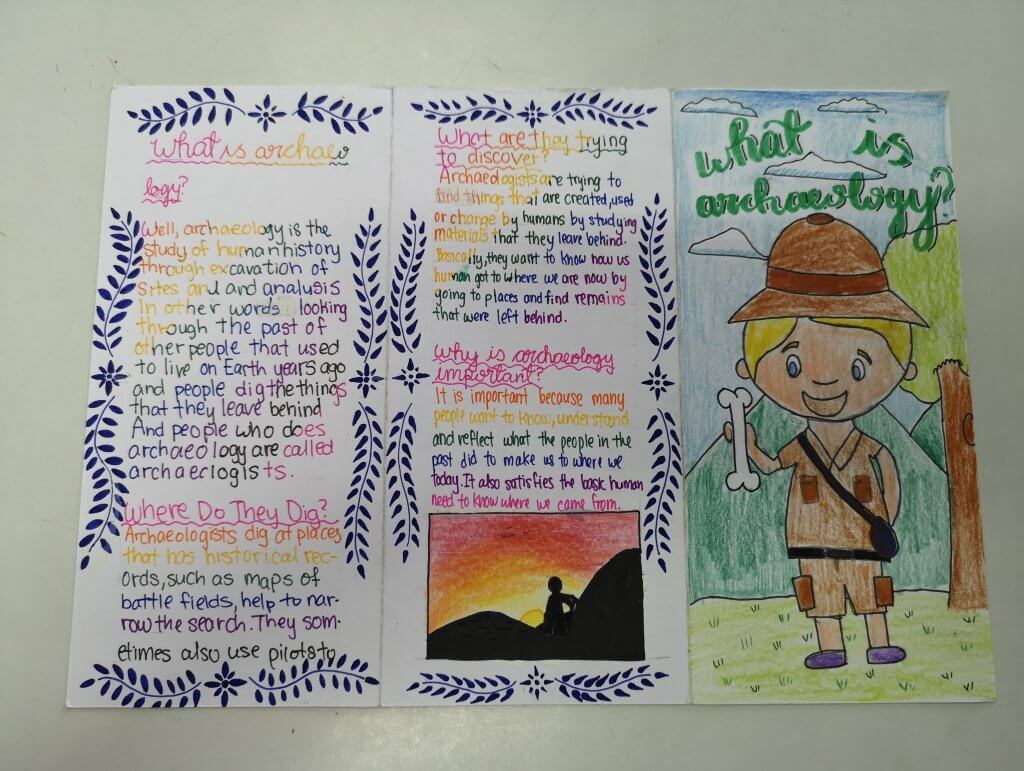 What is archaeo
logy?
Well, archaeology is the
study of human history
through excavation of
sites and and analysis
In other words looking
through the past of
other people that used
to live on Earth years ago
and people dig the things
that they leave behind
And people who does
archaeology are called
archaeologists.
Where Do They Dig?
Archaeologists dig at places
that has historical rec-
ords, such as maps of
battle fields, help to nar-
row the search. They som-
etimes also use pilots to
What are they trying
to discover?
Archaeologists are trying to
find things that are created, used
or change by humans by studying
materials that they leave behind.
Basically, they want to know how us
human got to where we are now by
going to places and find remains
that were left behind.
Why is archaeology
important?
It is important because many
people want to know, understand
and reflect what the people in the
past did to make us to where we
today. It also satisfies the basic human
need to know where we came from.
what is
archaeology?